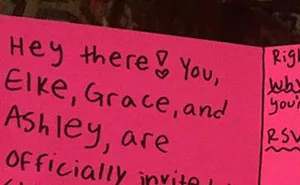 Hey there! You,
Elke, Grace, and
Ashley, are
officially invite
Rig
Why
you'
RSV